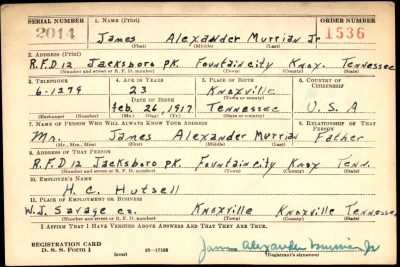 SERIAL NUMBER 1. NAME (Print) ORDER NUMBER
2014 James Alexander Murrian Jr 1536
(First) (Middle) (Last)
2. ADDRESS (Print)
R.F.D 12 Jacksboro PK. Fountain city Knox. Tennessee
(Number and street or R. F. D. number) (Town) (County) (State)
3. TELEPHONE 4. AGE IN YEARS 5. PLACE OF BIRTH 6. COUNTRY OF CITIZENSHIP
6-1279 23 Knoxville
(Town or county)
DATE OF BIRTH
Feb. 26, 1917 Tennessee U.S.A
(Exchange) (Number) (Mo.) (Day) (Yr.) (State or country)
7. NAME OF PERSON WHO WILL ALWAYS KNOW YOUR ADDRESS 8. RELATIONSHIP OF THAT PERSON
Mr. James Alexander Murrian Father
(Mr., Mrs., Miss) (First) (Middle) (Last)
9. ADDRESS OF THAT PERSON
R.F.D 12 Jacksboro PK. Fountain city Knox Tenn.
(Number and street or R. F. D. number) (Town) (County) (State)
10. EMPLOYER'S NAME
H. C. Hutsell
11. PLACE OF EMPLOYMENT OR BUSINESS
W.J. Savage co. Knoxville Knoxville Tennessee
(Number and street or R. F. D. number) (Town) (County) (State)
I AFFIRM THAT I HAVE VERIFIED ABOVE ANSWERS AND THAT THEY ARE TRUE.
REGISTRATION CARD
D. S. S. Form 1 (over) 16-17105 James Alexander Murrian Jr
(Registrant's signature)